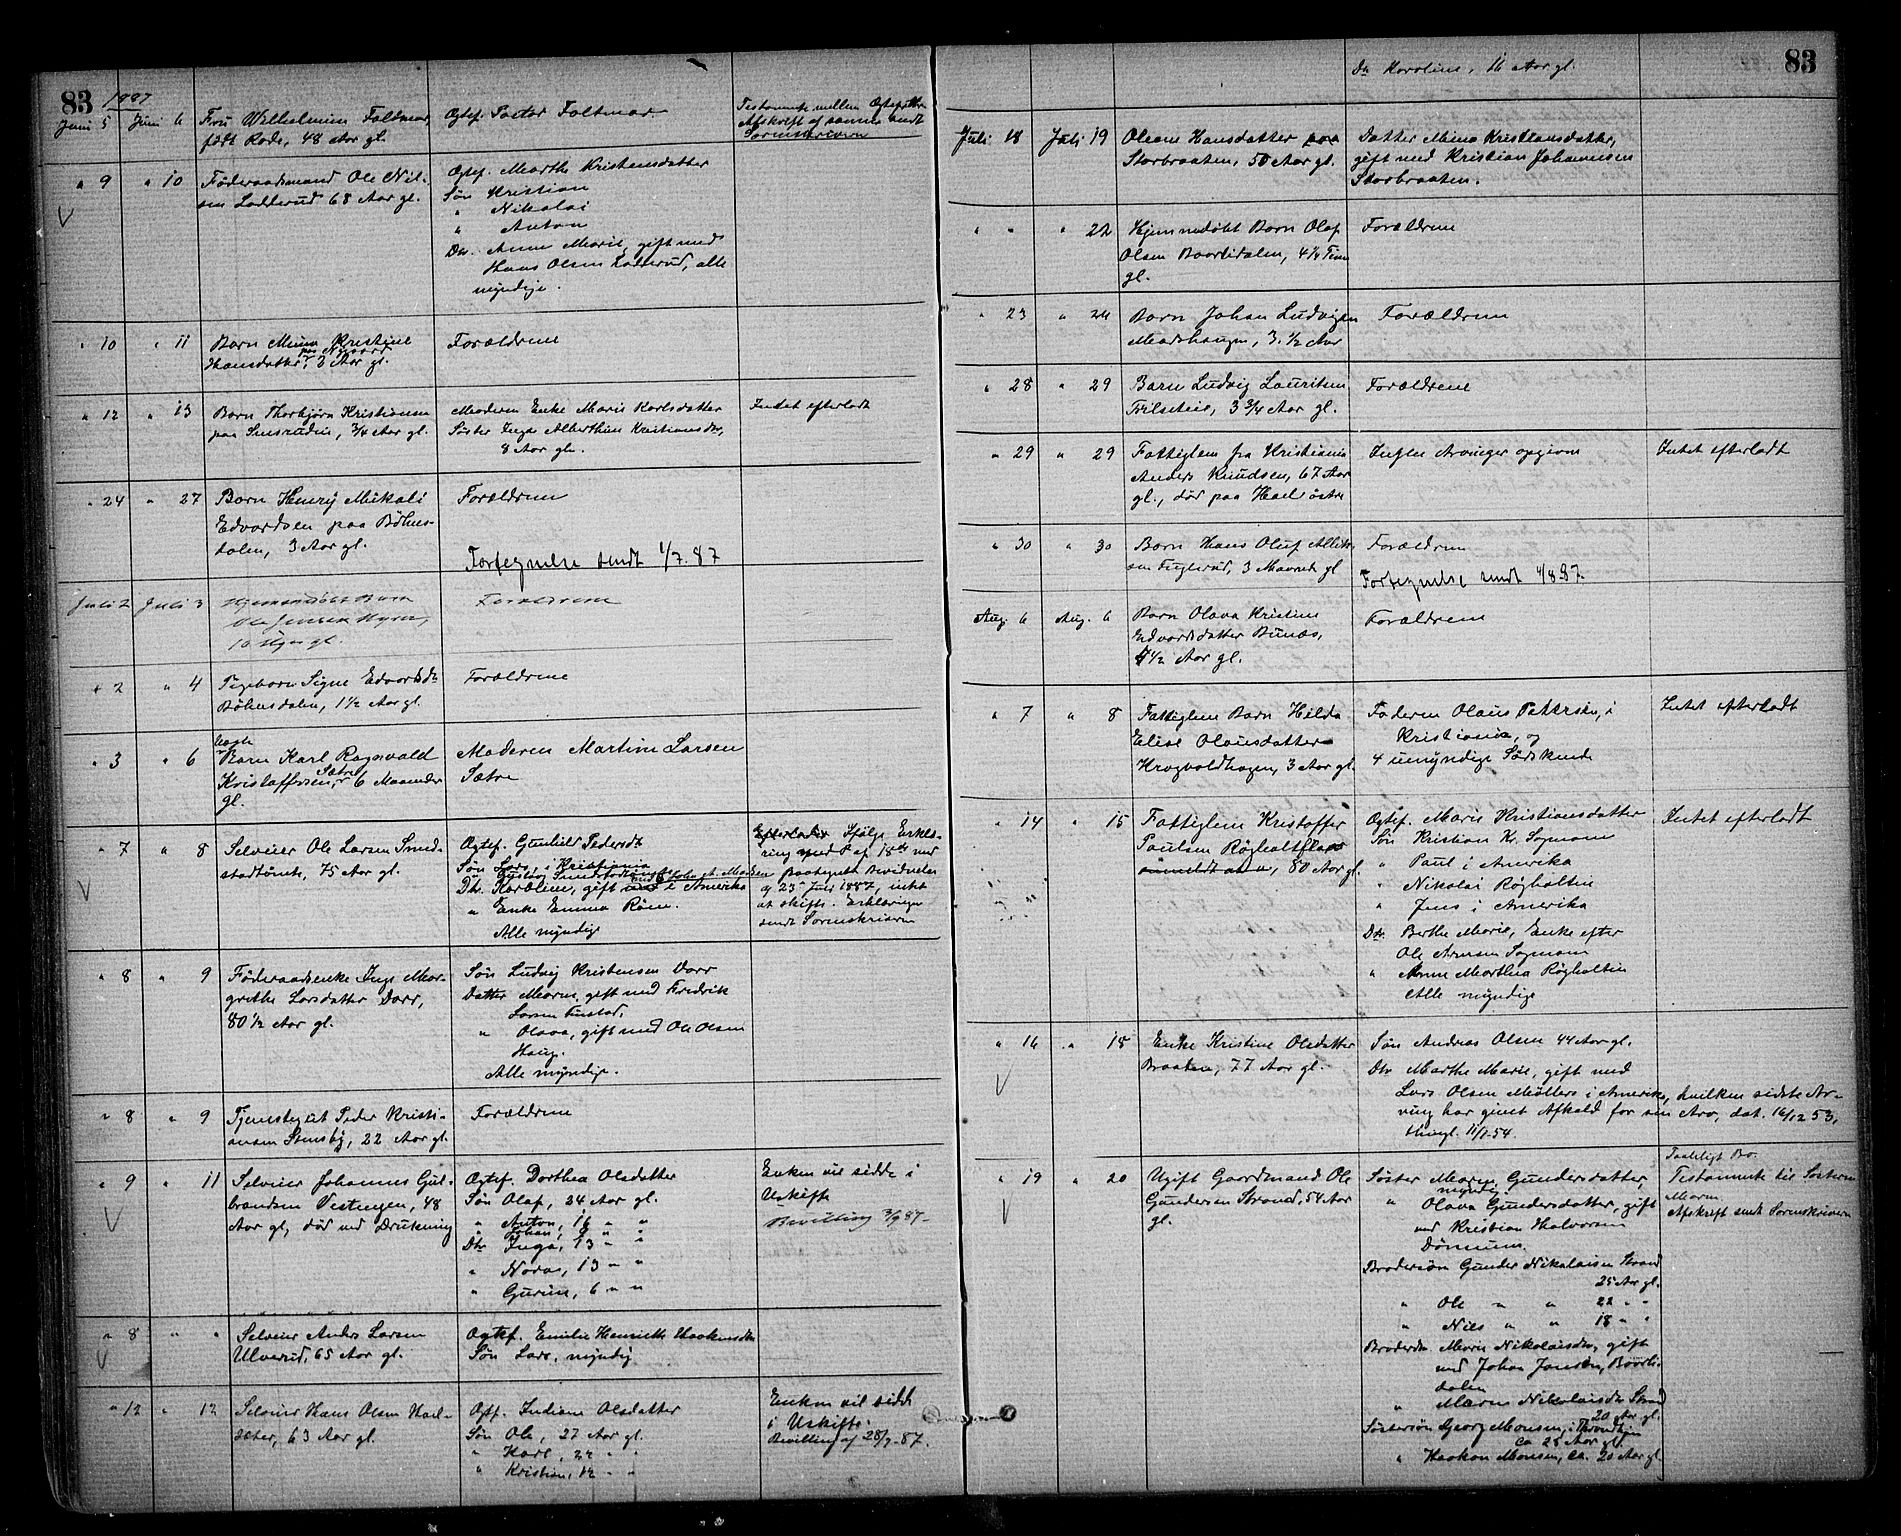 83
1887
Juni 5 Juni 6 Fru Wilhelmine Foltmar, Ogtef. Pastor Foltmar Testamente mellem Ogtefolkene
født Rode, 48 Aar gl. Afskrift af samme sendt
Sorenskriveren
" 9 " 10 Føderaadsmand Ole Nil- Ogtef. Marthe Kristensdatter
sen Ladderud 68 Aar gl. Søn Kristian
" Nikolai
" Anton
Dtr. Anne Marie, gift med
Hans Olsen Ladderud, alle
myndige.
" 10 " 11 Barn Minna Kristine Forældrene
paa Nygaard
Hansdatter, 3 Aar gl.
" 12 " 13 Barn Thorbjørn Kristiansen Moderen Enke Marie Karlsdatter Intet efterladt
paa Smsrudin, 3/4 Aar gl. Søster Inga Alberthine Kristiansdtr,
8 Aar gl.
" 24 " 27 Barn Henry Mikali Forældrene
Edvardsen paa Bøhns-
dalen, 3 Aar gl.
Fortegnelse sendt 1/7.87
Juli 2 Juli 3 Hjemmedøbt Barn Forældrene
Ole Jensen Myrer,
10 Uger gl.
" 2 " 4 Pigebarn Signe Edvardsdtr Forældrene
Bøhnsdalen, 1 1/2 Aar gl.
uægte
" 3 " 6 Barn Karl Ragnvald Moderen Martine Larsen
Sætre
Kristoffersen, 6 Maaneder Sætre
gl.
" 7 " 8 Selveier Ole Larsen Smed- Ogtef. Gunhild Pedersdtr Ifølge Erklæ-
stadtømte, 75 Aar gl. Søn Lars i Kristiania ring af 18de med
Dtr. Karoline, gift i Amerika af 23 Juli 1887, intet
" Enke Emma Røen. at skifte. Erklæringen
Alle myndige sendt Sorenskriveren
" 8 " 9 Føderaadsenke Inge Mar- Søn Ludvig Kristensen Dorr
grethe Larsdatter Dorr, Datter Maren, gift med Fredrik
80 1/2 Aar gl. Larsen Tustad,
" Olava, gift med Ole Olsen
Haug.
Alle myndige.
" 8 " 9 Tjenestegut Peder Kristi- Forældrene
ansen Stensby, 22 Aar gl.
" 9 " 11 Selveier Johannes Gul- Ogtef. Dorthea Olsdatter Enken vil sidde i
brandsen Tistengen, 48 Søn Olaf, 24 Aar gl. Uskifte
Aar gl., død ved Drukning " Anton, 16 " " Bevilling 3/9 87
" Johan, 8 " "
Dtr Inga, 13 " "
" Nora, 13 " "
" Gurine, 6 " "
" 8 " " Selveier Anders Larsen Ogtef. Emilie Henriette Haakensdtr
Ulverud, 65 Aar gl. Søn Lars, myndig
" 12 " 12 Selveier Hans Olsen Hael- Ogtf. Indiane Olsdatter Enken vil sidde
seter, 63 Aar gl. Søn Ole, 27 Aar gl. i Uskifte.
" Karl, 22 " " Bevilling af 28/7-87.
" Kristian, 12 " "
83
Dtr Karoline, 16 Aar gl.
Juli 18 Juli 19 Oleane Hansdatter paa Datter Mina Kristiansdatter,
Storbraaten, 50 Aar gl. gift med Kristian Johannesen
Storbraaten.
" " " 22 Hjemmedøbt Barn Olaf Forældrene
Olsen Baardsdalen, 4 1/4 Time
gl.
" 23 " 24 Barn Johan Ludvigsen Forældrene
Madshaugen, 3 1/2 Aar
" 28 " 29 Barn Ludvig Lauritsen Forældrene
Trilseteie, 3 3/4 Aar gl.
" 29 " 29 Fattiglem fra Kristiania Ingen Arvinger opgivne Intet efterladt
Anders Knudsen, 67 Aar
gl., død paa Hael østre
" 30 " 30 Barn Hans Oluf Allik- Forældrene
sen Fuglerud, 3 Maaneder gl
Fortegnelse sendt 4/8.87.
Aug. 6 Aug. 6 Barn Olava Kristine Forældrene
Edvardsdatter Bunæs,
4 1/2 Aar gl.
" 7 " 8 Fattiglem Barn Hilda Faderen Olaus Pettersen, i Intet efterladt
Elise Olausdatter Kristiania, og
Kragvoldhagen, 3 Aar gl. 4 umyndige Sødskende
" 14 " 15 Fattiglem Kristoffer Ogtef. Marie Kristiansdatter Intet efterladt
Paulsen Røgholtflaa Søn Kristian K. Sogmoen
80 Aar gl. " Paul i Amerika
" Nikolai Røgholtin
" Jens i Amerika
Dtr. Berthe Marie, Enke efter
Ole Arnesen Sogmoen
" Anne Marthea Røgholtin
Alle myndige
" 16 " 18 Enke Kristine Olsdatter Søn Andreas Olsen 44 Aar gl.
Braaten, 77 Aar gl. Dtr Marthe Marie, gift med
Lars Olsen Møllers i Amerika, hvilken sidste Ar-
ving har givet Afkald for sin Arv, dat. 16/12 53,
thingl. 11/1-54.
Taaleligt Bo.
" 19 " 20 Ugift Gaardmand Ole Søster Maren Gundersdatter, Testamente til Søsteren
Gundersen Strand, 54 Aar myndig. Maren.
gl. " Olava Gundersdatter, gift Afskrift sendt Sorenskriveren
med Kristian Halvorsen
Dønnum.
Brodersøn Gunder Nikolaisen Strand
25 Aar gl.
" Ole " " 22 " "
" Nils " " 18 " "
Broderdtr Marie Nikolaisdtr, gift
med Johan Jansen, Baards-
dalen
" Maren Nikolaisdtr Strand
20 Aar gl.
Søstersøn Georg Monsen, i Trondhjem
ca 25 Aar gl.
" Haakon Monsen, ca. 20 Aar gl.